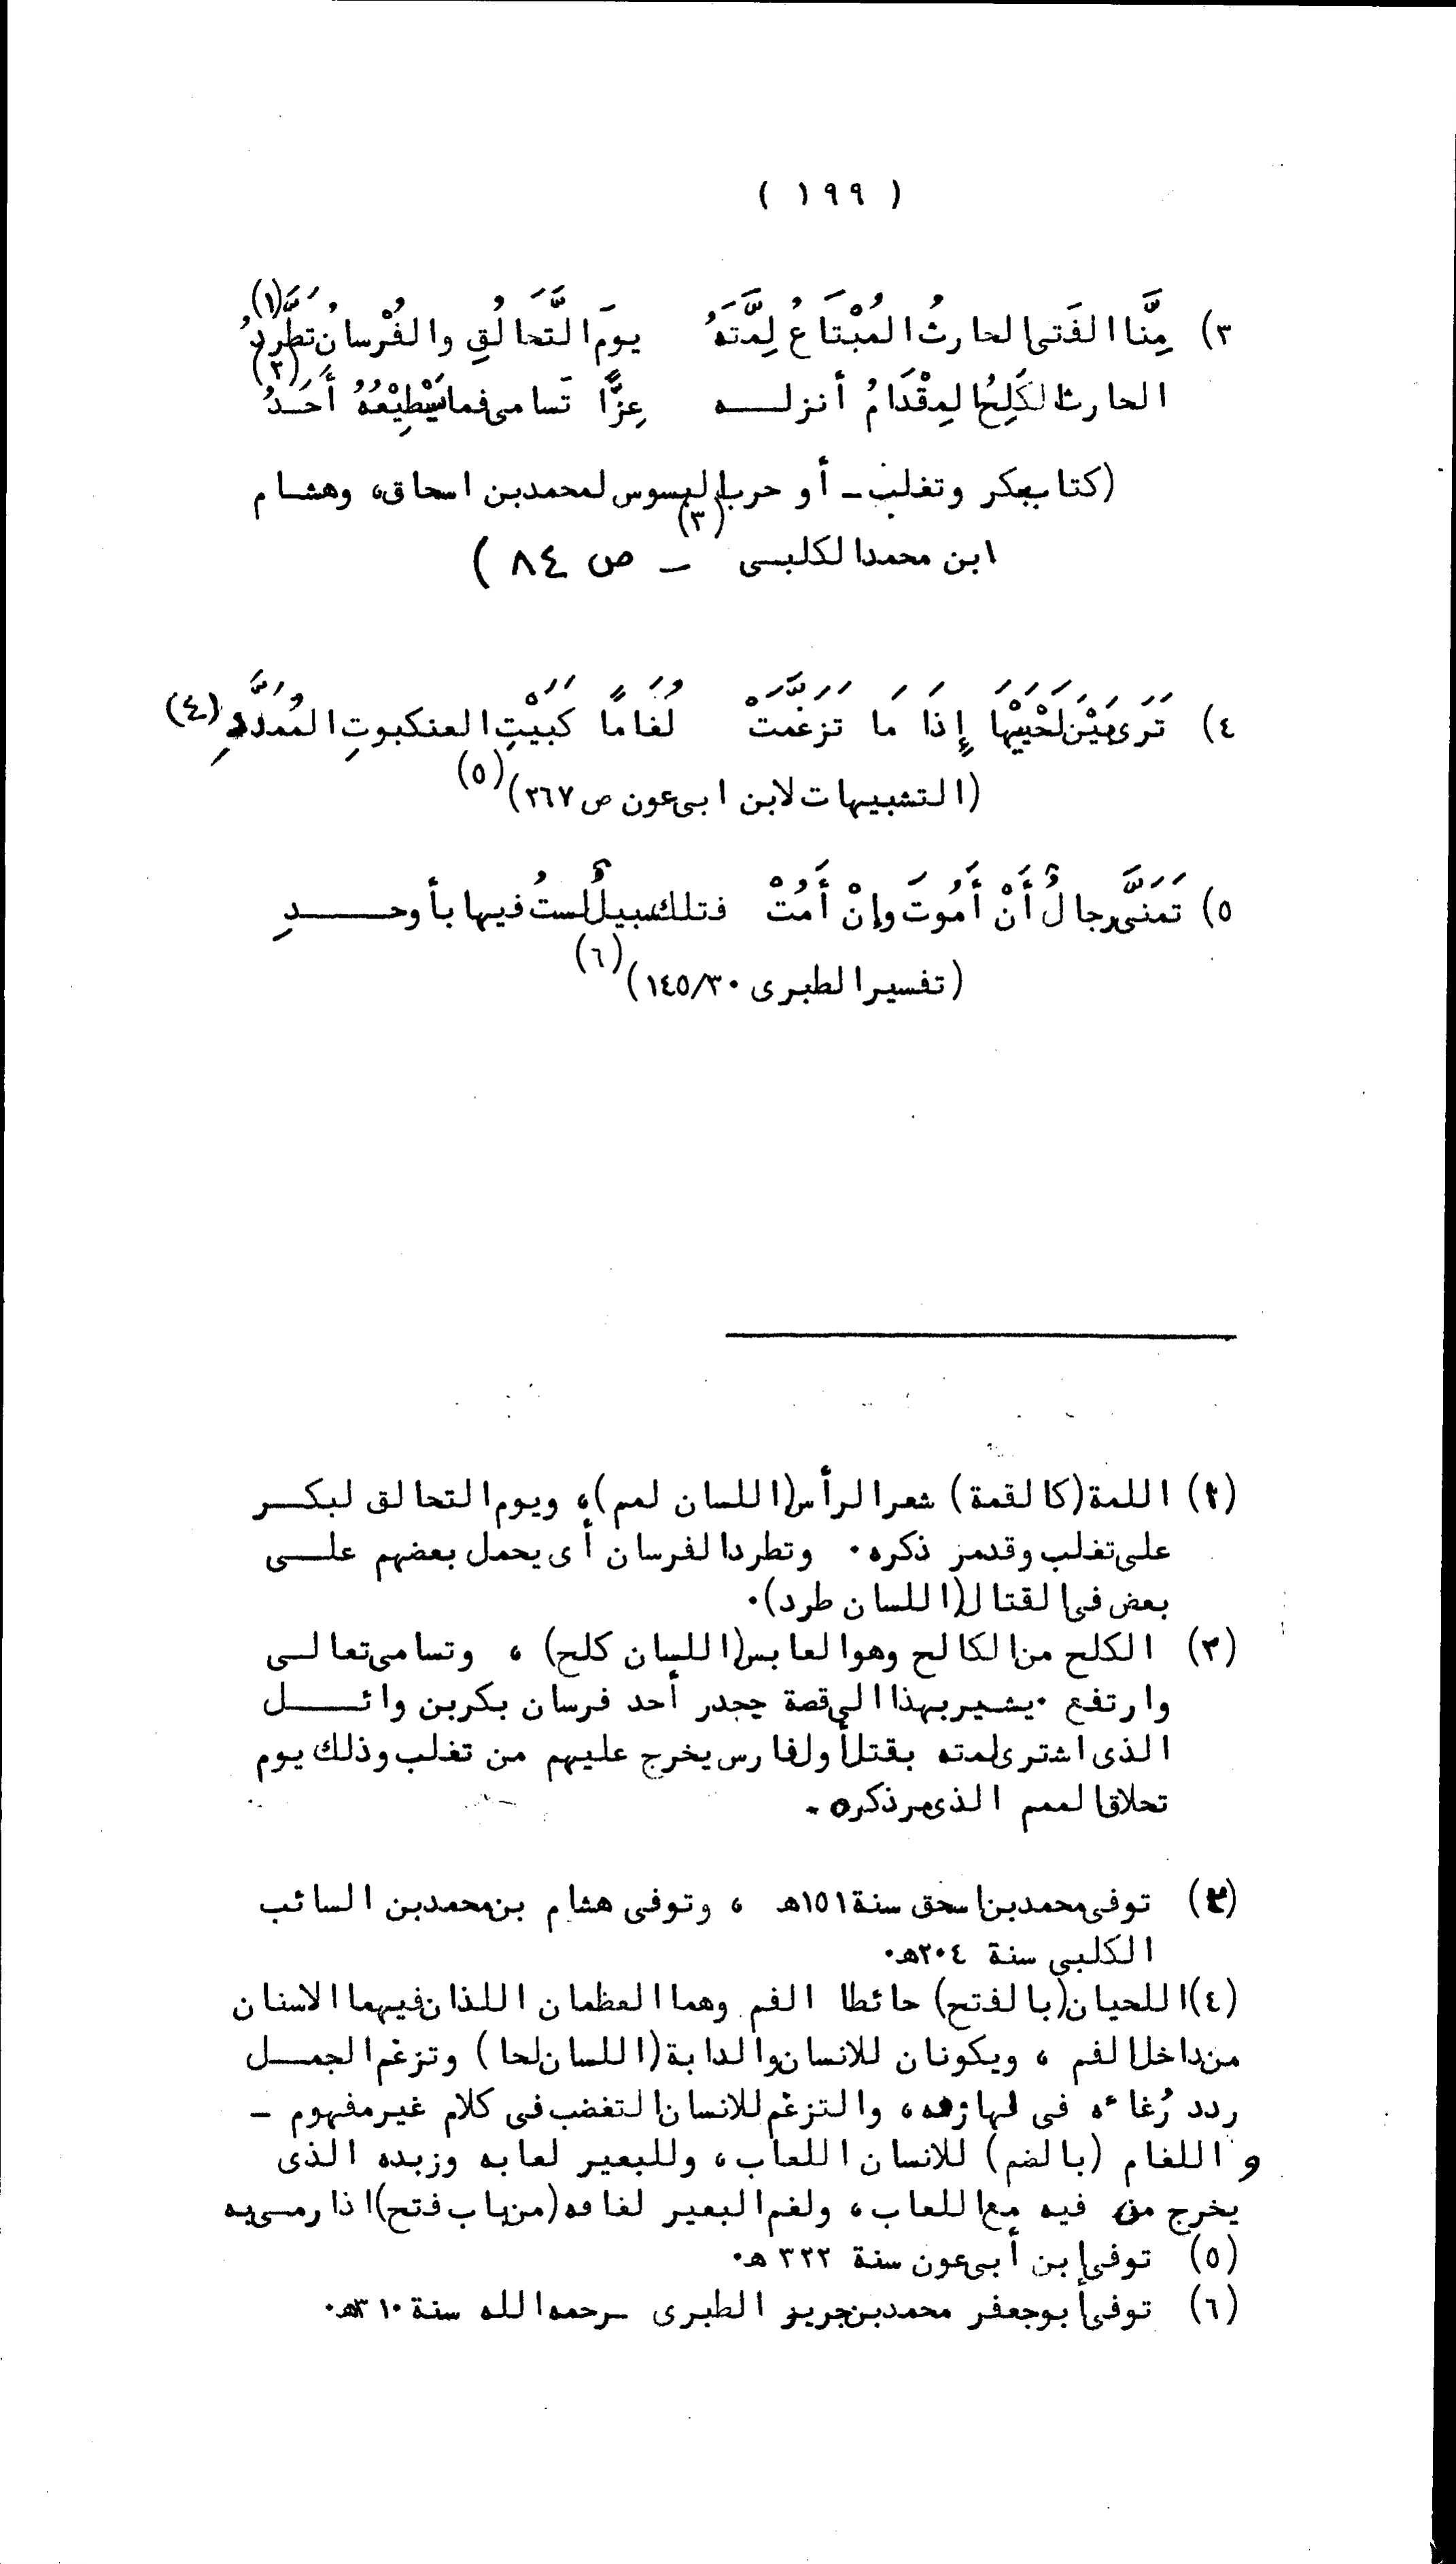 ( ١٩٩ )
٣) مِنَّا الفَتى الحارثُ المُبْتَاعُ لِمَّتَهُ يومَ التَّحَالُقِ والفُرْسانُ تطَّرِدُ (١)
الحارث الكَلِحُ المِقْدَامُ أنزلـــه عِزًّا تَسامى فما يَسْطِيْعُهُ أَحَـدُ (٢)
(كتاب بكر وتغلب ـ أو حرب البسوس لمحمد بن اسحاق، وهشـام
ابن محمد الكلبـى (٣) ـ ص ٨٤ )
٤) تَرَى بَيْنَ لَحْيَيْهَا إِذَا مَا تَزَغَّمَتْ لُغَامًا كَبَيْتِ العنكبوتِ المُمَدَّدِ (٤)
(التشبيهات لابن ابى عون ص ٢٦٧) (٥)
٥) تَمَنَّى رجالٌ أَنْ أَمُوتَ وإنْ أَمُتْ فتلك سبيلٌ لستُ فيها بأوحــــدِ
(تفسير الطبرى ١٤٥/٣٠) (٦)
(١) اللمة (كالقمة) شعر الرأس (اللسان لمم)، ويوم التحالق لبكــر
على تغلب وقد مر ذكره. وتطرد الفرسان أى يحمل بعضهم علــى
بعض فى القتال (اللسان طرد).
(٢) الكلح من الكالح وهو العابس (اللسان كلح) ، وتسامى تعالـى
وارتفع . يشير بهذا الى قصة جحدر أحد فرسان بكر بن وائــــل
الذى اشترى لمته بقتل أول فارس يخرج عليهم من تغلب وذلك يوم
تحلاق اللمم الذى مر ذكره .
(٣) توفى محمد بن اسحق سنة ١٥١هـ ، وتوفى هشام بن محمد بن السائب
الكلبى سنة ٢٠٤هـ.
(٤) اللحيان (بالفتح) حائطا الفم وهما العظمان اللذان فيهما الاسنان
من داخل الفم ، ويكونان للانسان والدابة (اللسان لحا ) وتزغم الجمــل
ردد رُغاءه فى لهازمه، والتزغم للانسان التغضب فى كلام غير مفهوم ـ
و اللغام (بالضم) للانسان اللعاب، وللبعير لعابه وزبده الذى
يخرج من فيه مع اللعاب، ولغم البعير لغامه (من باب فتح) اذا رمـى به
(٥) توفى إبن أبى عون سنة ٣٢٢ هـ.
(٦) توفى أبو جعفر محمد بن جرير الطبرى ـ رحمه الله سنة ٣١٠هـ.